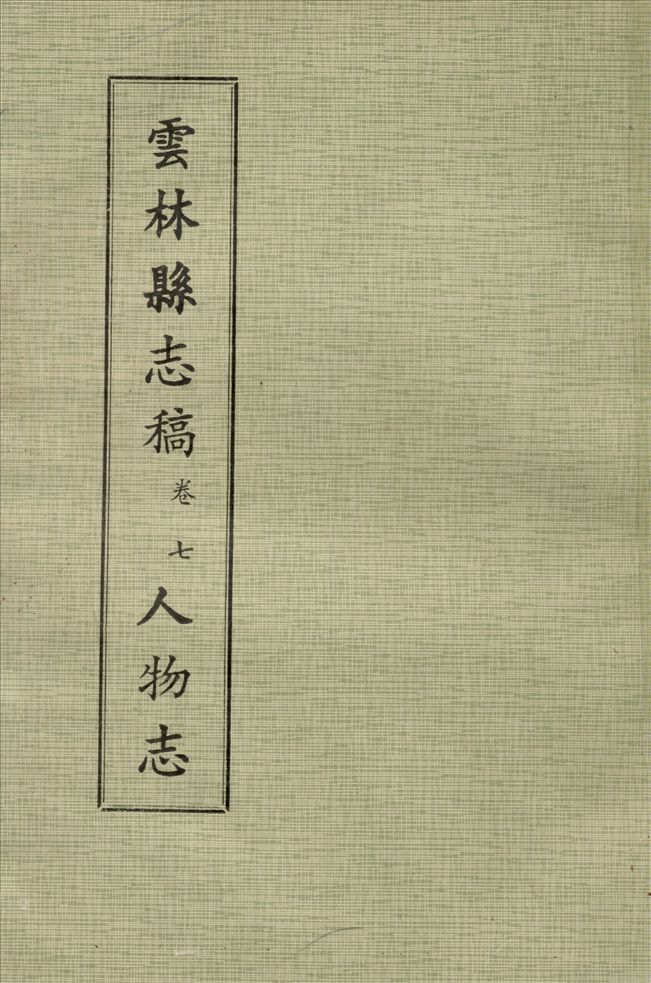 雲林縣志稿卷七人物志